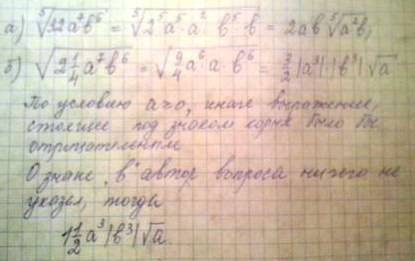 а) ⁵√32a⁷b⁶ = ⁵√2⁵a⁵·a²·b⁵·b = 2ab ⁵√a²b,
б) √2 1/4 a⁷b⁶ = √9/4 a⁶·a·b⁶ = 3/2 |a³|·|b³| √a
По условию a≥0, иначе выражение,
стоящее под знаком корня было бы
отрицательным
О знаке "b" автор вопроса ничего не
указал, тогда
1 1/2 a³|b³|√a.